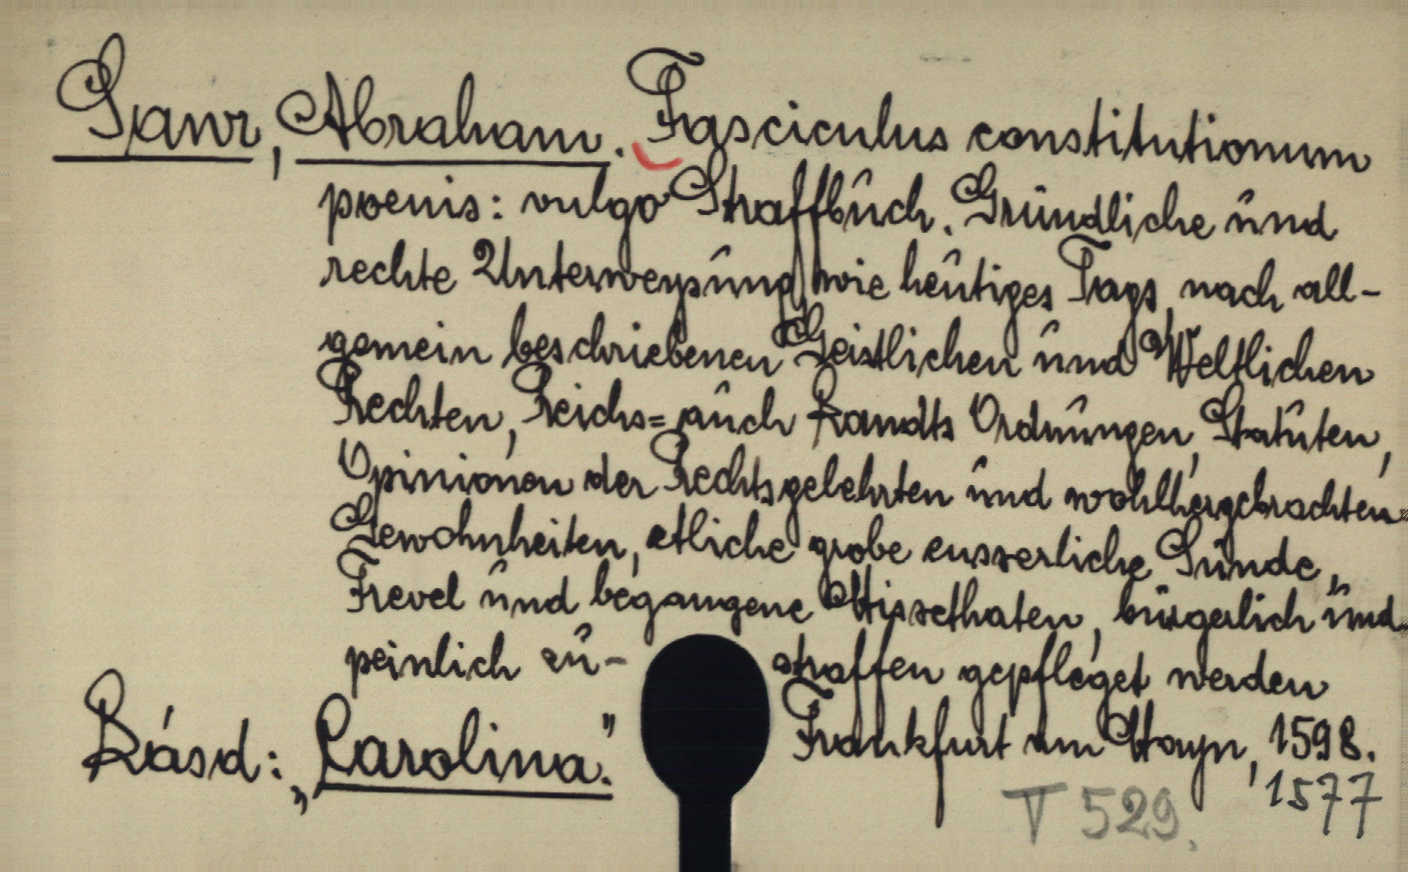 Sawr, Abraham. Fasciculus constitutionum
poenis: vulgo Straffbuch. Gründliche und
rechte Unterweysung wie heutiges Tags nach all-
gemein beschriebenen Geistlichen und Weltlichen
Rechten, Reichs= auch Landts Ordnungen, Statuten,
Opinionen der Rechtsgelehrten und wohlhergebrachten
Gewohnheiten, etliche grobe eusserliche Sünde,
Frevel und begangene Missethaten, bürgerlich und
peinlich zu- straffen gepfleget werden
Frankfurt am Mayn, 1598.
Lásd: „Carolina."
1577
T 529.